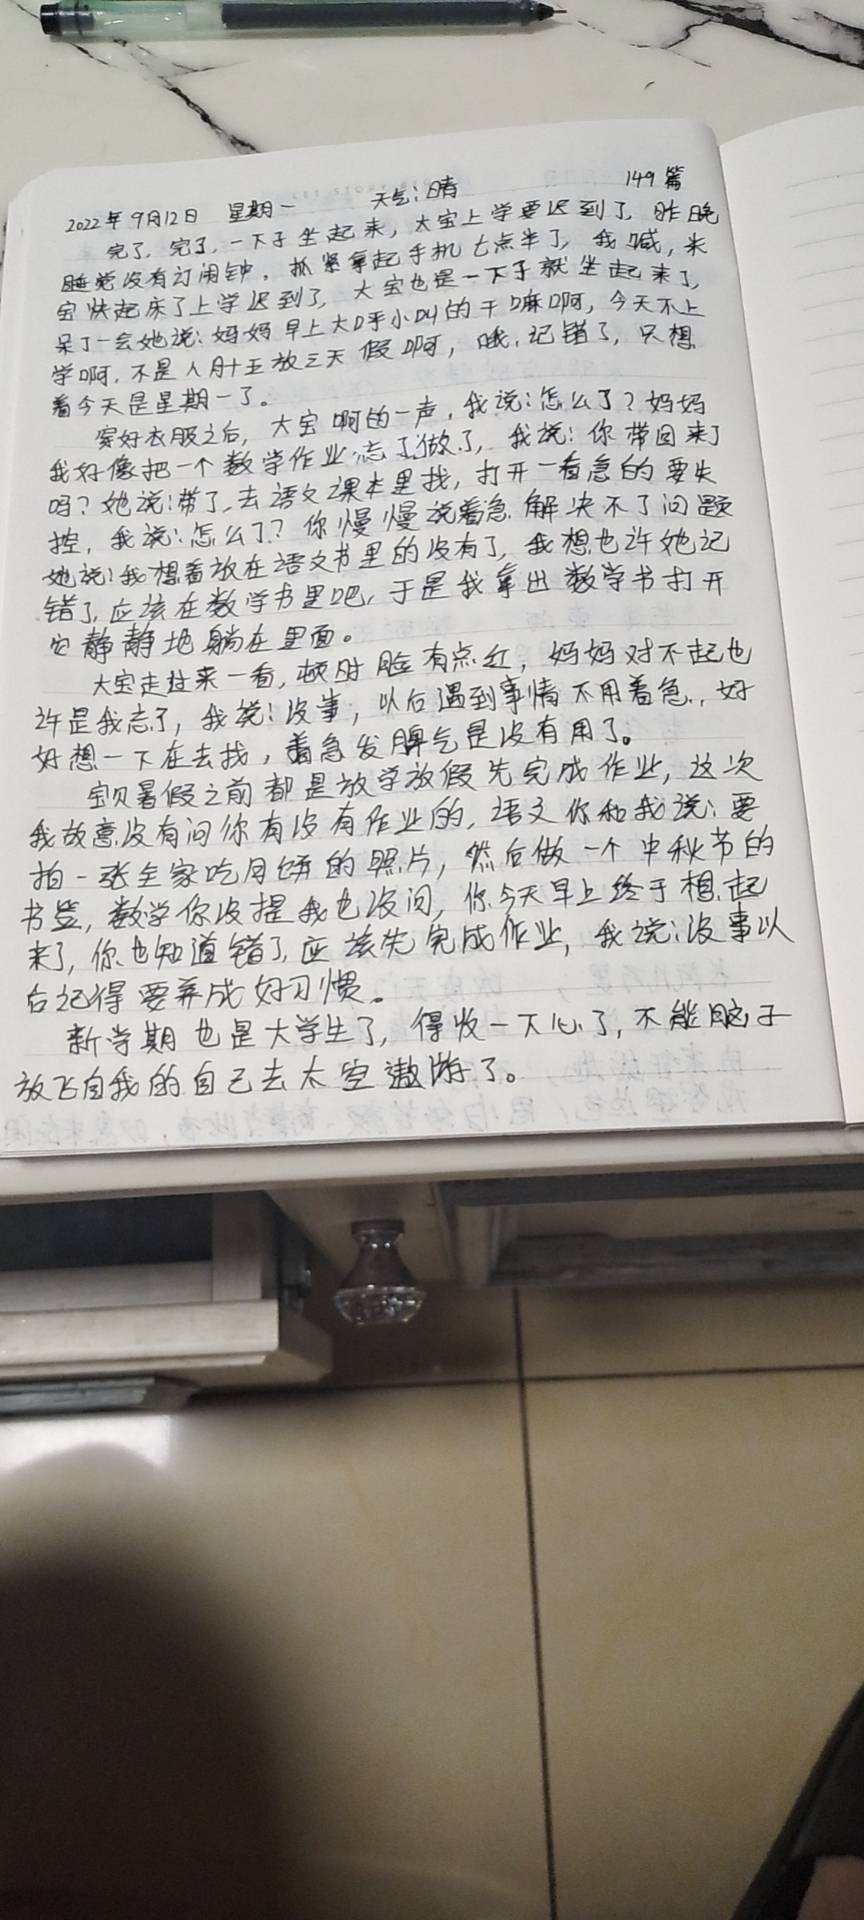 2022年9月12日 星期一 天气:晴 149篇
完了,完了,一下子坐起来,大宝上学要迟到了,昨晚
睡觉没有订闹钟,抓紧拿起手机七点半了,我喊,米
宝快起床了上学迟到了,大宝也是一下子就坐起来了,
呆了一会她说:妈妈早上大呼小叫的干嘛啊,今天不上
学啊,不是八月十五放三天假啊,哦,记错了,只想
着今天是星期一了。
穿好衣服之后,大宝啊的一声,我说:怎么了?妈妈
我好像把一个数学作业忘了做了,我说:你带回来了
吗?她说:带了,去语文课本里找,打开一看急的要失
控,我说:怎么了?你慢慢说着急解决不了问题
她说:我想着放在语文书里的没有了,我想也许她记
错了,应该在数学书里吧,于是我拿出数学书打开
它静静地躺在里面。
大宝走过来一看,顿时脸有点红,妈妈对不起也
许是我忘了,我说:没事,以后遇到事情不用着急,好
好想一下在去找,着急发脾气是没有用了。
宝贝暑假之前都是放学放假先完成作业,这次
我故意没有问你有没有作业的,语文你和我说:要
拍一张全家吃月饼的照片,然后做一个中秋节的
书签,数学你没提我也没问,你今天早上终于想起
来了,你也知道错了,应该先完成作业,我说:没事以
后记得要养成好习惯。
新学期也是大学生了,得收一下心了,不能脑子
放飞自我的自己去太空遨游了。